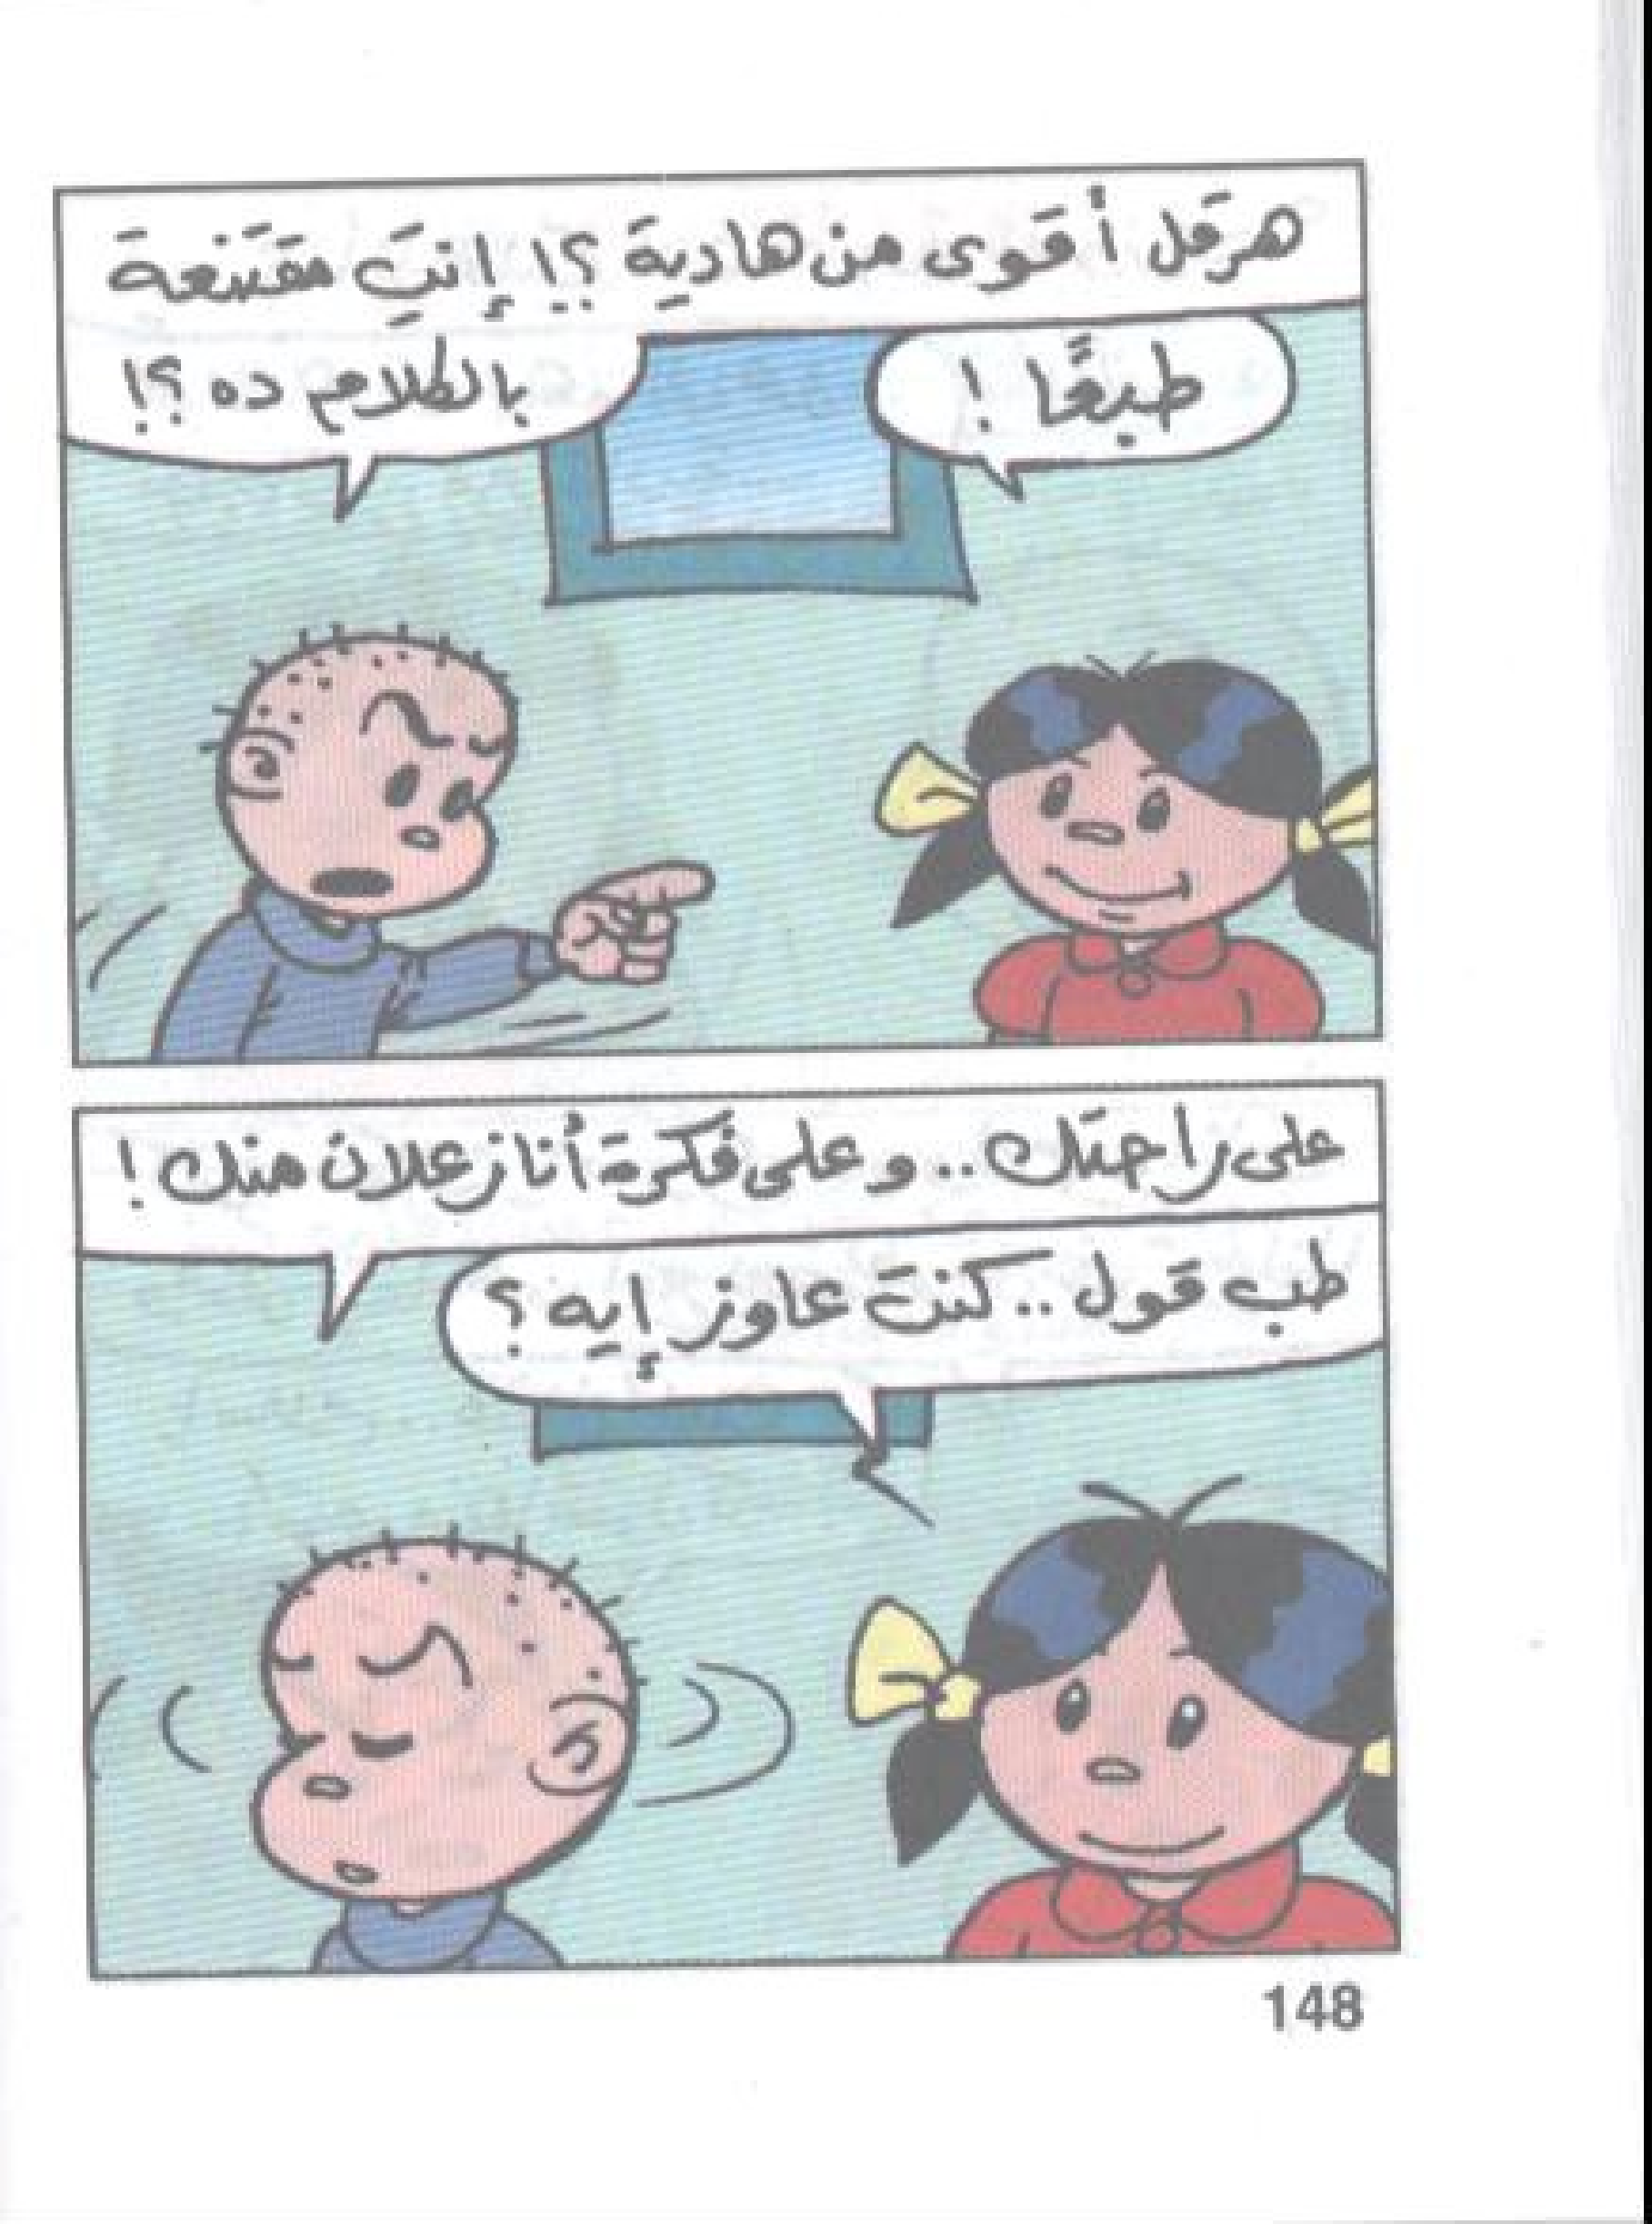 هرقل أقوى من هادية ؟! إنتِ مقتنعة
بالكلام ده ؟!
طبعًا !
على راحتك .. وعلى فكرة أنا زعلان منك !
طب قول .. كنت عاوز إيه ؟
148